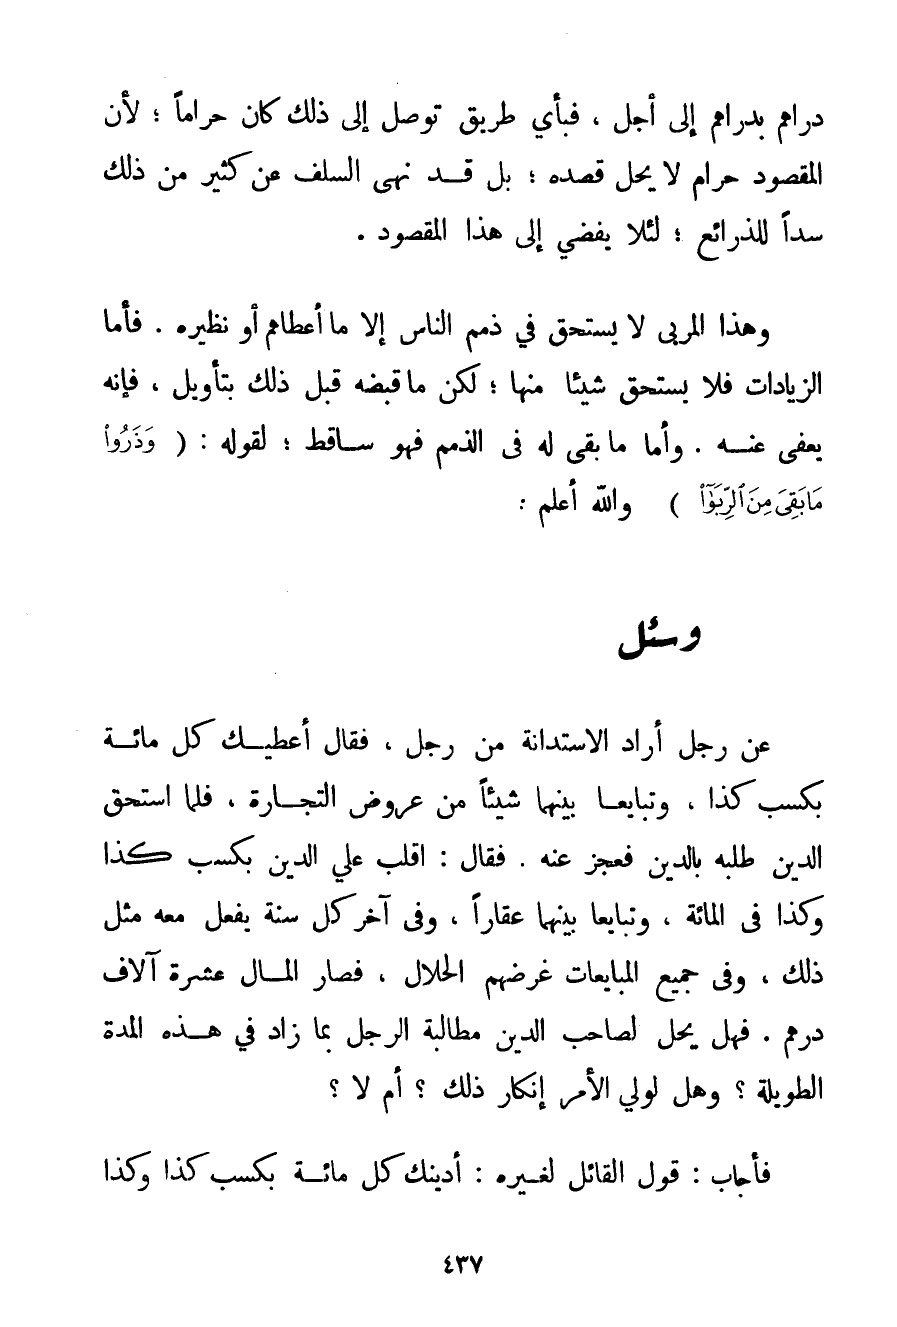 دراهم بدراهم إلى أجل ، فبأي طريق توصل إلى ذلك كان حراماً ؛ لأن
المقصود حرام لا يحل قصده ؛ بل قـد نهى السلف عن كثير من ذلك
سداً للذرائع ؛ لئلا يفضي إلى هذا المقصود .
وهذا المربى لا يستحق في ذمم الناس إلا ما أعطاهم أو نظيره . فأما
الزيادات فلا يستحق شيئا منها ؛ لكن ما قبضه قبل ذلك بتأويل ، فإنه
يعفى عنـه . وأما ما بقى له فى الذمم فهو سـاقط ؛ لقوله : ( وَذَرُوا۟
مَا بَقِىَ مِنَ ٱلرِّبَوٰٓا۟ ) والله أعلم :
وسئل
عن رجل أراد الاستدانة من رجل ، فقال أعطيـك كل مائـة
بكسب كذا ، وتبايعـا بينهما شيئاً من عروض التجـارة ، فلما استحق
الدين طلبه بالدين فعجز عنه . فقال : اقلب علي الدين بكسب كذا
وكذا فى المائة ، وتبايعا بينهما عقاراً ، وفى آخر كل سنة يفعل معه مثل
ذلك ، وفى جميع المبايعات غرضهم الحلال ، فصار المـال عشرة آلاف
درهم . فهل يحل لصاحب الدين مطالبة الرجل بما زاد في هـذه المدة
الطويلة ؟ وهل لولي الأمر إنكار ذلك ؟ أم لا ؟
فأجاب : قول القائل لغـيره : أدينك كل مائـة بكسب كذا وكذا
٤٣٧